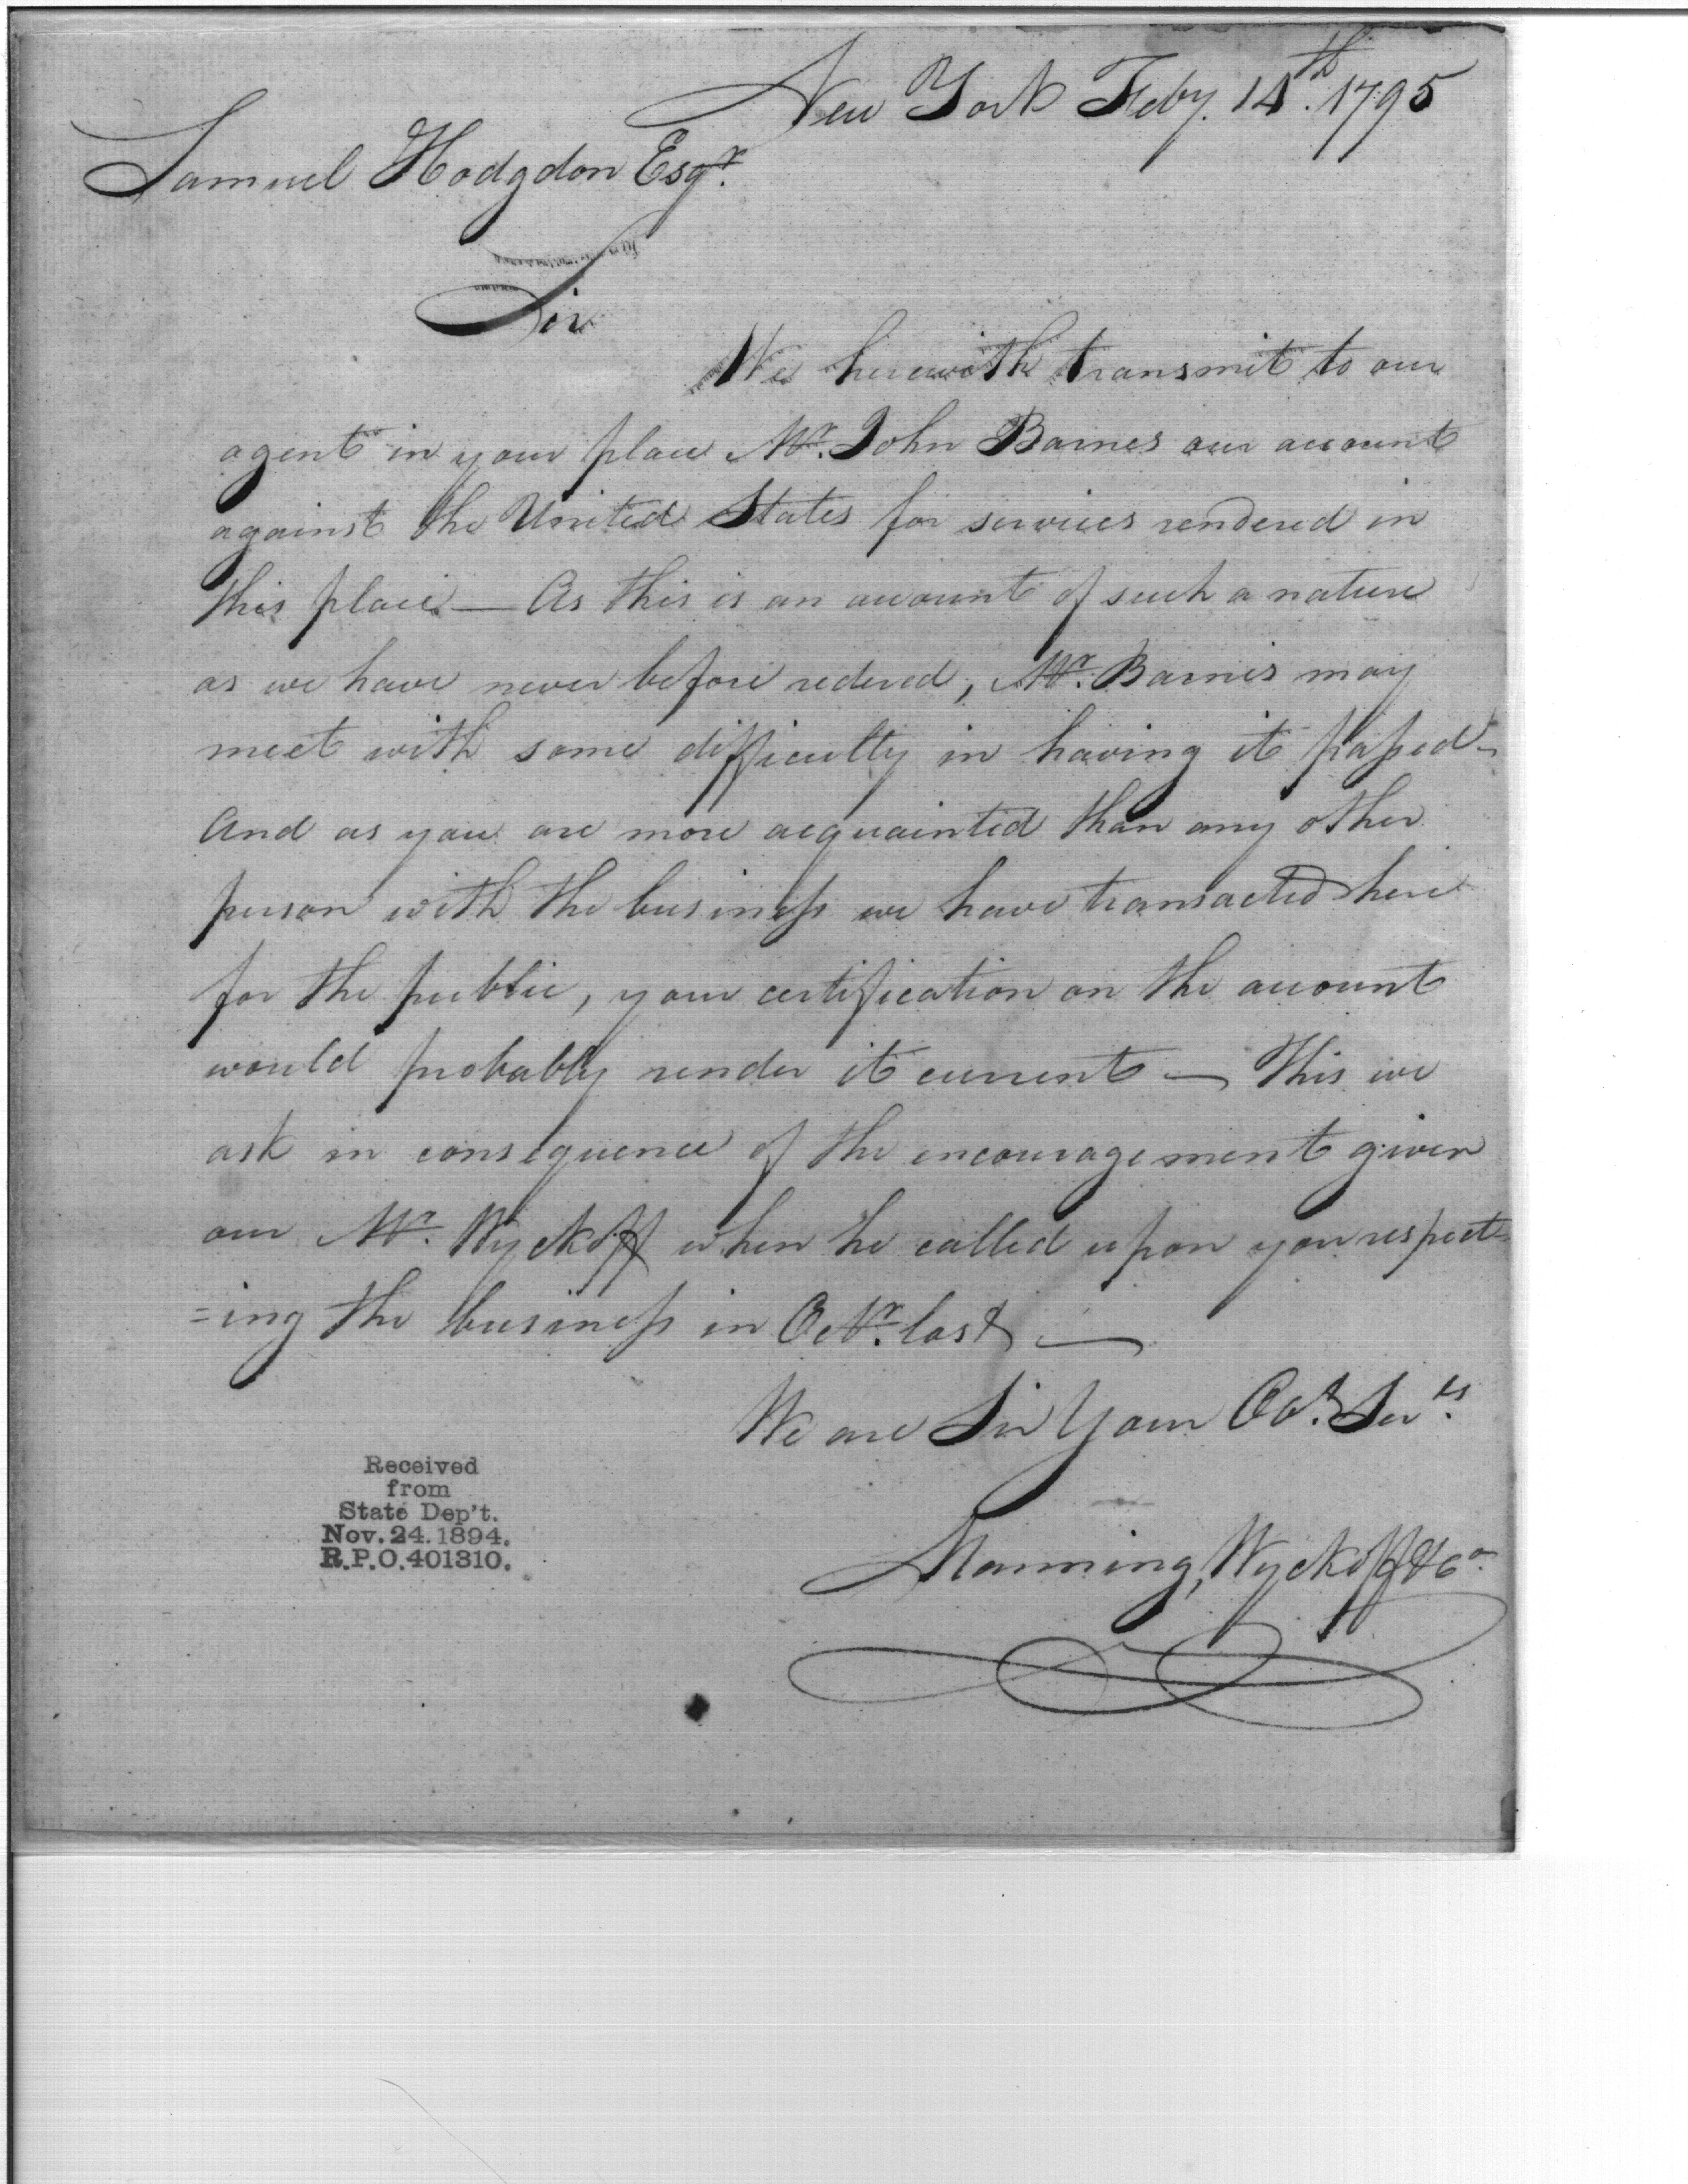 New York Feby. 14th. 1795
Samuel Hodgdon Esqr.
Sir
We herewith transmit to our
agent in your place Mr. John Barnes our account
against the United States for services rendered in
this place — As this is an account of such a nature
as we have never before redered, Mr. Barnes may
meet with some difficulty in having it passed –
And as you are more acquainted than any other
person with the business we have transacted here
for the public, your certification on the account
would probably render it current — This we
ask in consequence of the encouragement given
our Mr. Wyckoff when he called upon you respect=
=ing the business in Octr. last —
We are Sir Your Obt. Servts.
Manning, Wyckoff & Co.
Received
from
State Dep't.
Nov. 24. 1894.
R.P.O. 401310.